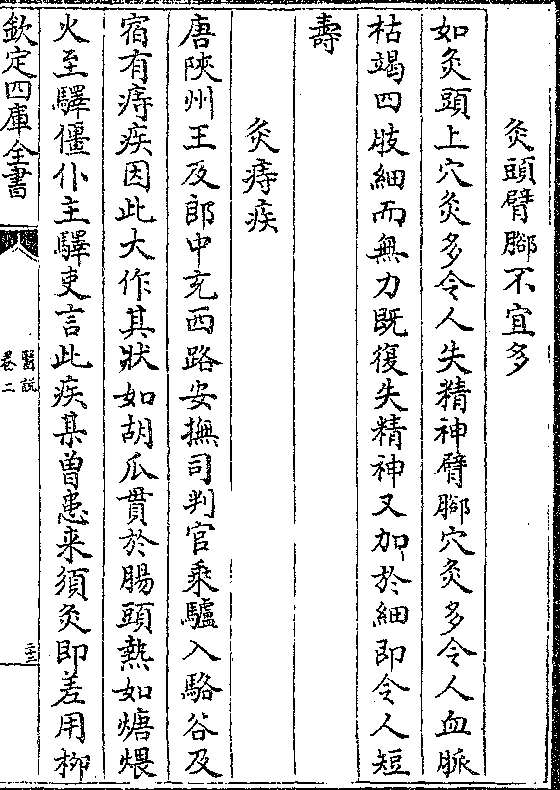 灸頭臂腳不宜多
如灸頭上穴灸多令人失精神臂腳穴灸多令人血脈
枯竭四肢細而無力既復失精神又加於細即令人短
壽
灸痔疾
唐陜州王及郎中充西路安撫司判官乘驢入駱谷及
宿有痔疾因此大作其狀如胡瓜貫於腸頭熱如煻煨
火至驛僵仆主驛吏言此疾某曽患来須灸即差用柳
欽定四庫全書
醫説
卷二